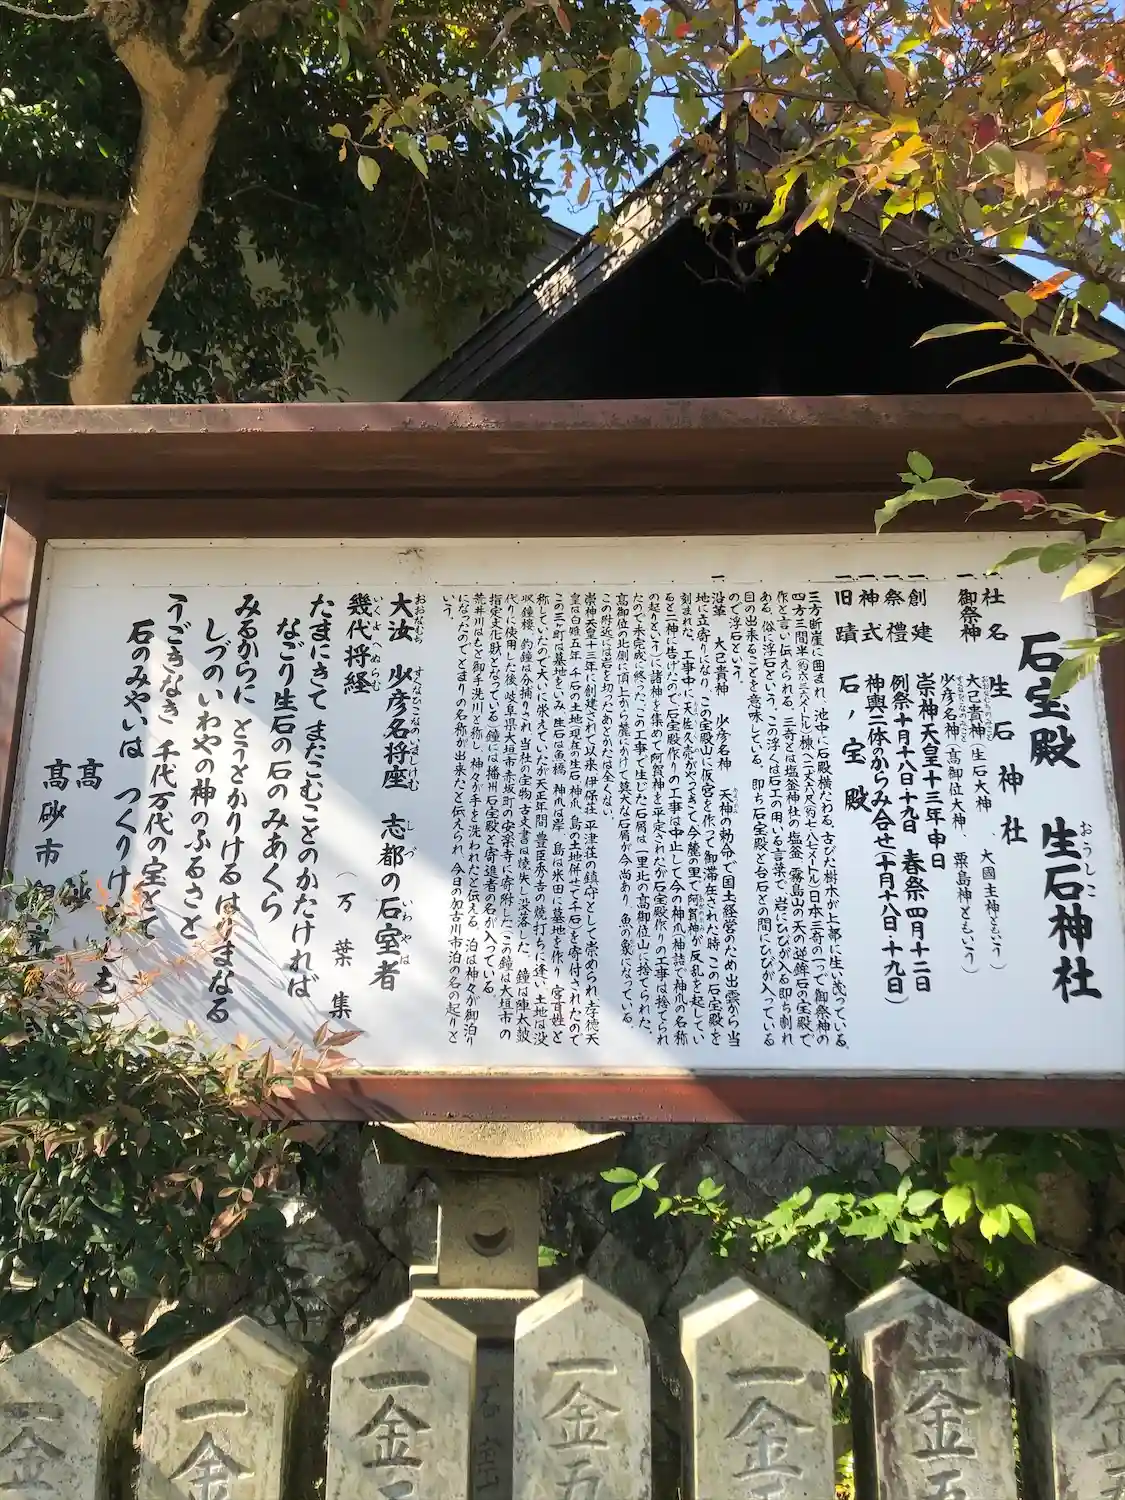 石宝殿 生石神社
おうしこ
一 社名 生石神社
一 御祭神 大己貴神(生石大神、大國主神ともいう)
少彦名神(高御位大神、粟島神ともいう)
一 創建 崇神天皇十三年申日
一 祭禮 例祭十月十八日・十九日 春祭四月十二日
一 神式 神輿二体のからみ合せ(十月十八日・十九日)
一 旧蹟 石ノ宝殿
三方断崖に囲まれ、池中に石殿横たわる。古びた樹木が上部に生い茂っている。
四方三間半(約六・三六メートル)棟へ二丈六尺(約七・八七メートル)日本三奇の一つで御祭神の
作と言い伝えられる。三奇とは塩釜神社の塩釜、霧島山の天の逆鉾石の宝殿で
ある。俗に浮石という。この浮くは石工の用いる言葉で、岩にひびが入る即ち割れ
目の出来ることを意味している。即ち石宝殿と台石との間にひびが入っている
ので浮石という。
一 沿革 大己貴神 少彦名神 天神の勅命で国土経営のため出雲から当
地に立寄りになり、この宝殿山に仮宮を作って御滞在された時、この石宝殿を
刻まれた。工事中に天佐久売がやってきて、今麓の里で阿賀神が反乱を起してい
ると二神に告げたので、石宝殿作りの工事は中止して今の柿爪神詰で神爪の名称
の起りという)に諸神を集めて阿賀神を平定されたが石宝殿作りの工事は捨てられ
たので未完成に終った。この工事で生じた石屑は一里北の高御位山に捨てられた。
高御位の北側に頂上から麓にかけて莫大な石屑が今尚あり、魚の象になっている。
この附近には岩を切ったあとかたは全くない。
崇神天皇十三年に創建されて以来、伊保荘、平津荘の鎮守として崇められ、孝徳天
皇は白雉五年、千石の土地現在の生石、神爪、島の土地併せて千石)を寄付されたので
この三ヶ町は墓地をいみ、生石は魚橋、神爪は岸、島は米田に墓地を作り、宮百姓と
称していたので大いに栄えていたが天正年間、豊臣秀吉の焼打ちに逢い、土地は没
収、鐘楼、釣鐘は分捕りされ、当社の宝物、古文書は焼失し没落した。鐘は陣太鼓
代りに使用した後、岐阜県大垣市赤坂町の安楽寺に寄附した。この鐘は大垣市の
指定文化財となっている。鐘には播州石宝殿と寄進者の名が入っている。
荒井川はもと御手洗川と称し、神々が手を洗われたと伝える。泊は神々が御泊り
になったのでとまりの名称が出来たと伝えられ、今日の加古川市泊の名の起りと
いう。
大汝 少彦名将座 志都の石室者
おおなむち すくなひこなのいましけむ しづ いわやは
幾代将経
いくよへぬらむ
(万葉集
たまにきて またこむことのかたければ
なごり生石の石の みあくら
みるからに とうとかりけるはりまなる
しづのいわやの神のふるさと
うごきなき 千代万代の宝とて
石のみやいは つくりけ
高砂
高砂市観
一金五
一金
一金五
一金五
一金五
一金五
一金五